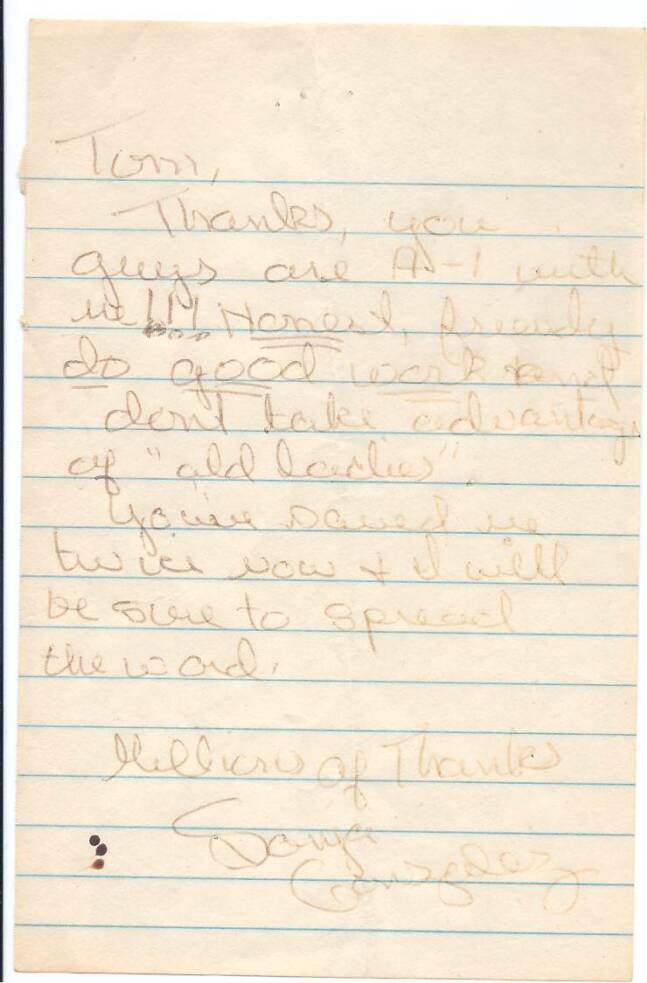 Tom,
Thanks, you
guys are A-1 with
me!!! Honest, friendly
do good work and
don't take advantage
of "old ladies".
You've saved me
twice now + I will
be sure to spread
the word.
Millions of Thanks
Gonzalez